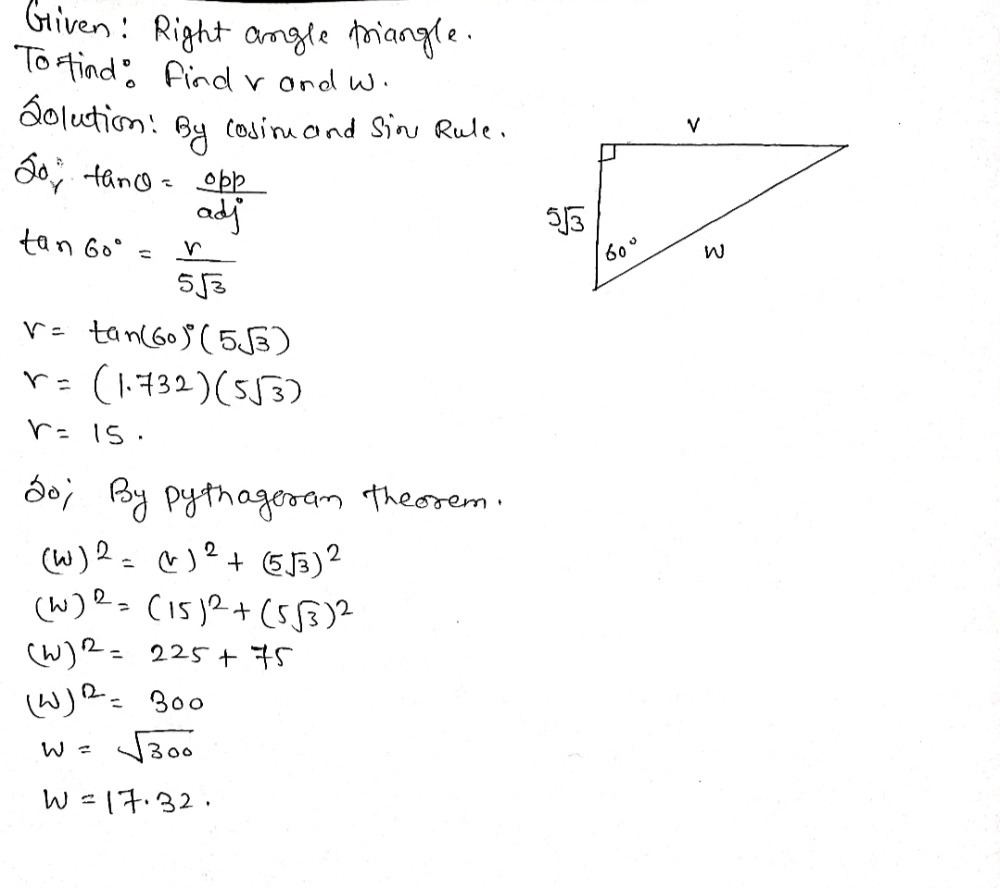 Given: Right angle triangle.
To find: find v and w.
Solution: By cosine and Sin Rule.
So, tanθ = opp/adj
tan 60° = v/5√3
v = tan(60)°(5√3)
v = (1.732)(5√3)
v = 15.
So; By pythagoran theorem.
(w)2 = (v)2 + (5√3)2
(w)2 = (15)2 + (5√3)2
(w)2 = 225 + 75
(w)2 = 300
w = √300
w = 17.32.
v
5√3
60°
w